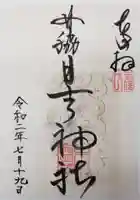 奉拝
日吉神社
令和二年七月十九日